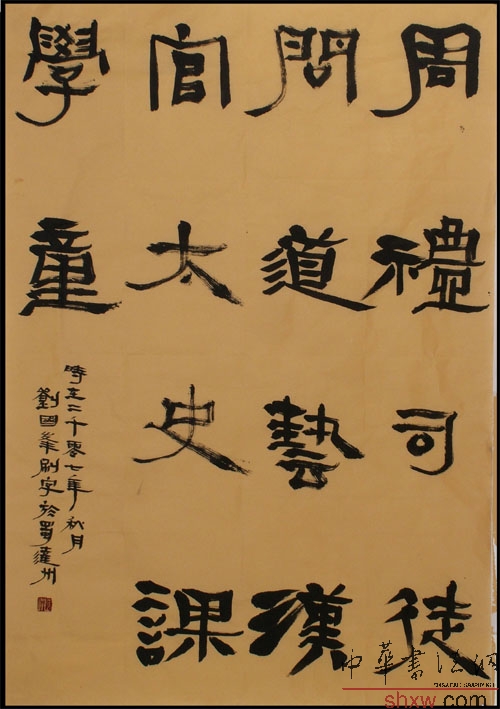 周禮司徒
問道藝漢
官太史課
學童
時在二千零七年秋月
劉國刷字於蜀達州
中華書法网
shxw.com